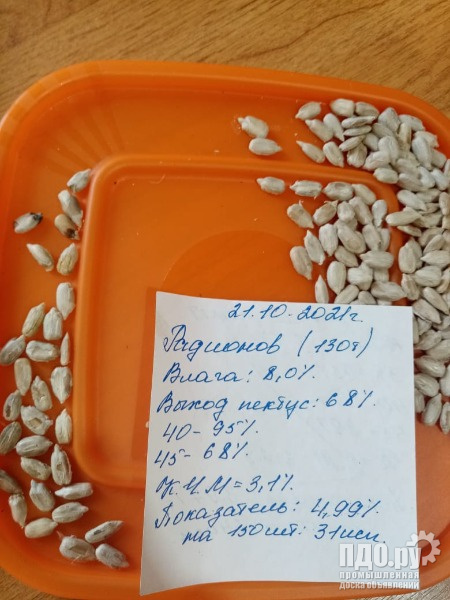 21.10.2021г.
Радионов (130т)
Влага: 8,0%.
Выход пектус: 68%.
40 - 95%.
45 - 68%.
К.И.М = 3,1%
Показатель: 4,99%
на 150шт: 31исп.
ПДО.ру
промышленная
доска объявлений